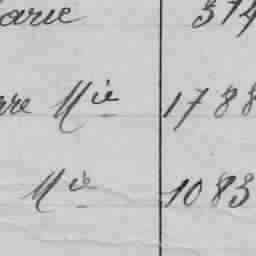 arie 314
rre Mie 1788
Mie 1083